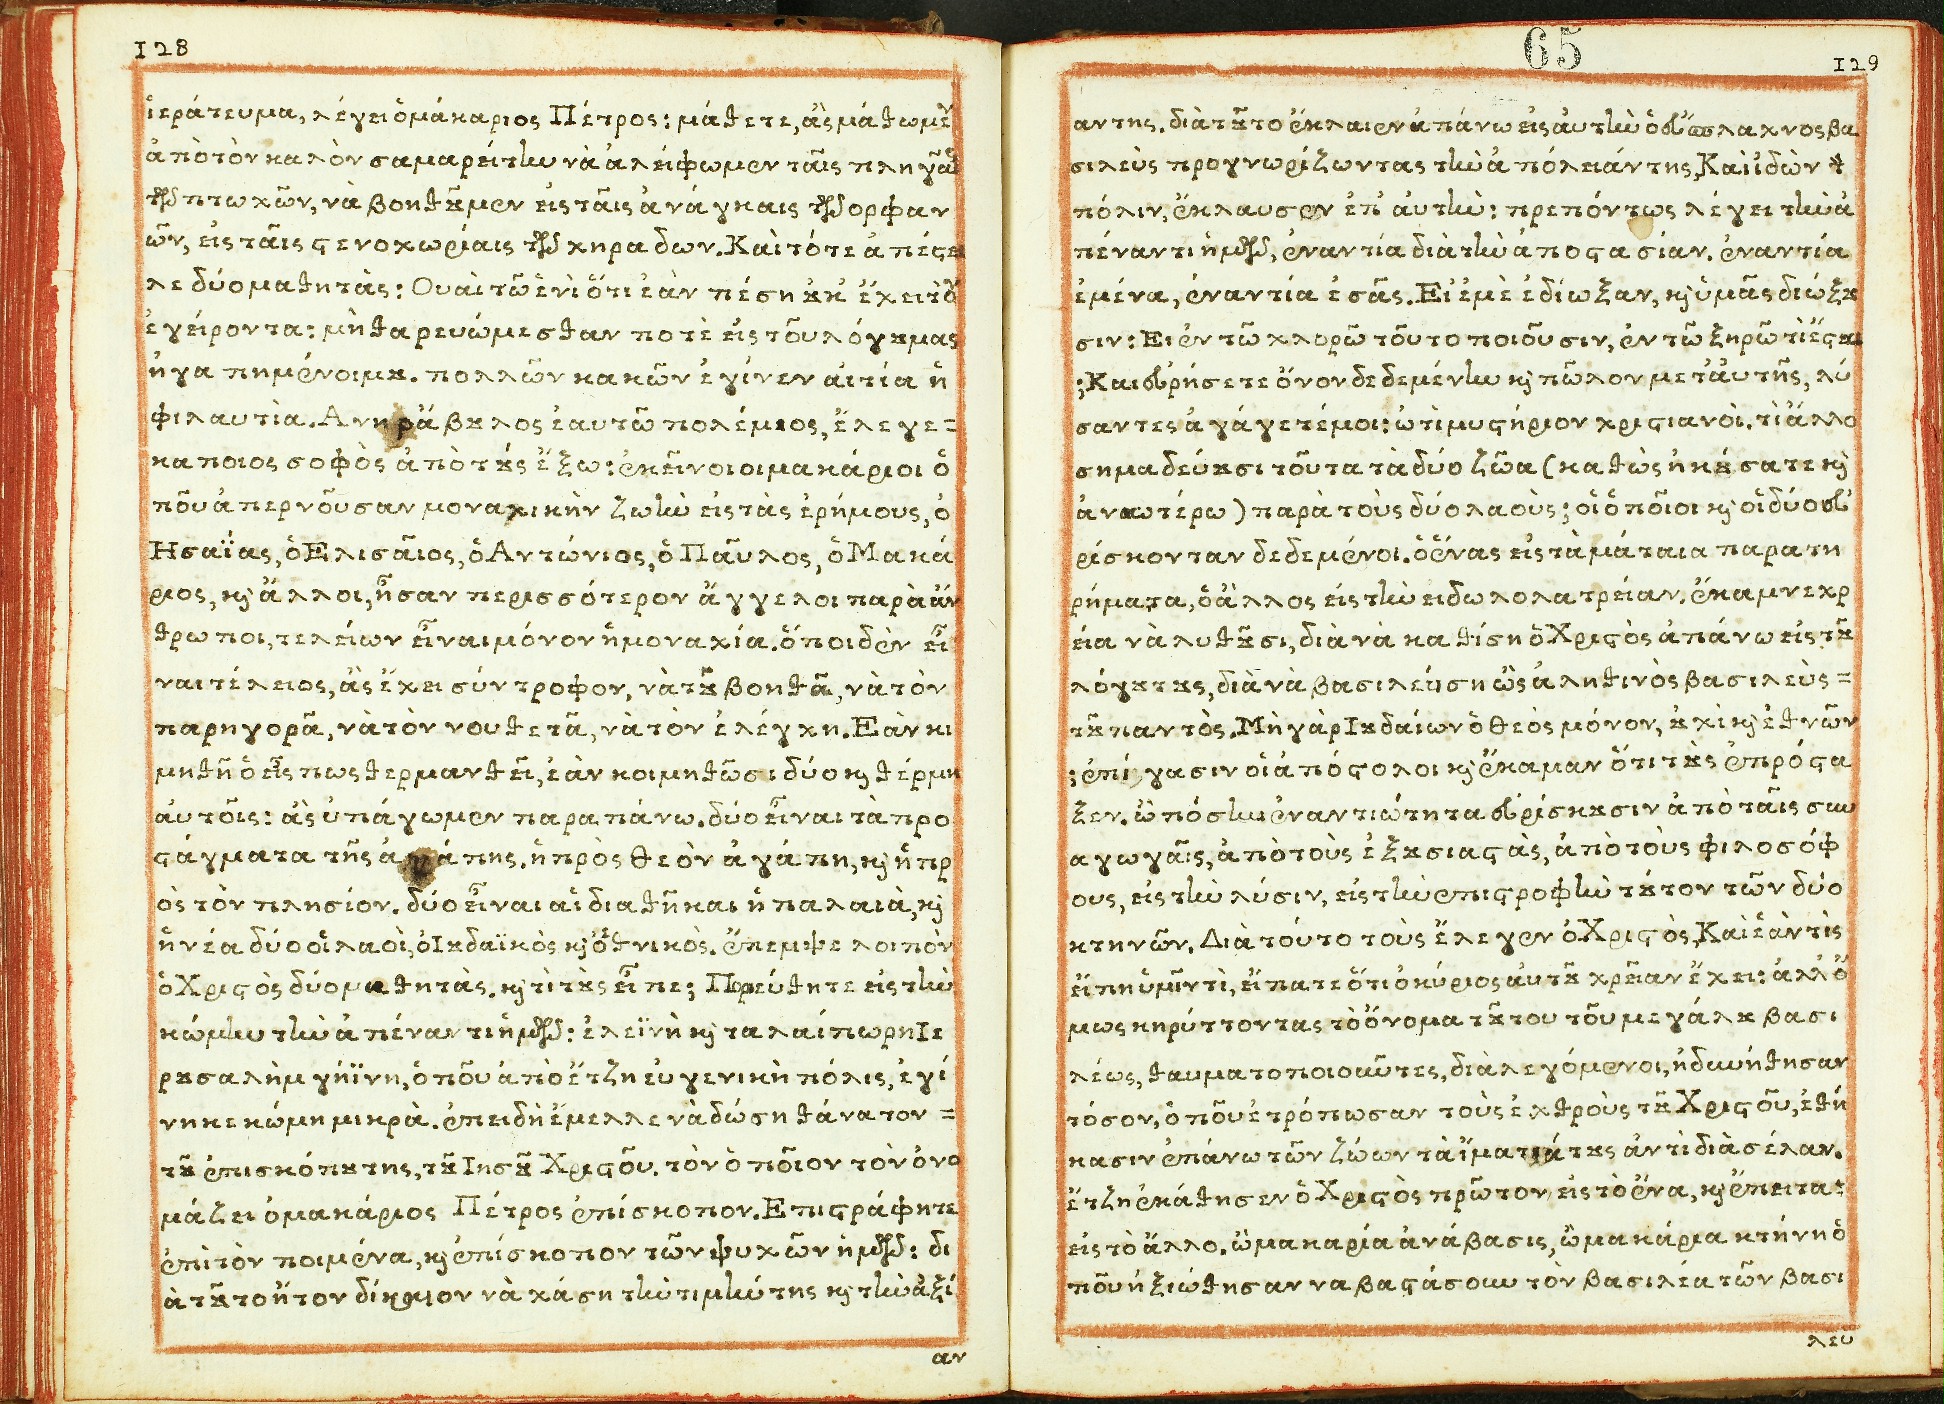 128
ἱεράτευμα, λέγει ὁ μάκαριος Πέτρος: μάθετε, ἂς μάθωμεν
ἀπὸ τὸν καλὸν σαμαρείτην νὰ ἀλείφωμεν ταῖς πληγαῖς
τῶν πτωχῶν, νὰ βοηθοῦμεν εἰς ταῖς ἀνάγκαις τῶν ορφαν
ῶν, εἰς ταῖς στενοχωρίαις τῶν χηράδων. Καὶ τότε ἀπέστει
λε δύο μαθητάς: Ουαὶ τῶ ἑνὶ ὅτι ἐὰν πέση οὐκ ἔχει τὸν
ἐγείροντα: μὴ θαρευώμεσθαν ποτὲ εἰς τοῦ λόγου μας
ἠγαπημένοι μου. πολλῶν κακῶν ἐγίνεν ἀιτία ἡ
φιλαυτία. Ανὴρ ἄβουλος ἑαυτῶ πολέμιος, ἔλεγε=
καποιος σοφὸς ἀπὸ τοὺς ἔξω: ἐκεῖνοι οι μακάριοι ὁ
ποῦ ἀπερνοῦσαν μοναχικὴν ζωὴν εἰς τὰς ἐρήμους, ὁ
Ησαΐας, ὁ Ελισαῖος, ὁ Αντώνιος, ὁ Παῦλος, ὁ Μακά
ριος, καὶ ἄλλοι, ἦσαν περισσότερον ἄγγελοι παρὰ ἄν
θρωποι, τελείων εἶναι μόνον ἡ μοναχία. ὅποι δὲν εἶ
ναι τέλειος, ἂς ἔχει σύντροφον, νὰ τοῦ βοηθᾶ, νὰ τὸν
παρηγορᾶ, νὰ τὸν νουθετᾶ, νὰ τὸν ἐλέγχη. Εὰν κι
μηθῆ ὁ εἷς πως θερμανθεῖ, ἐὰν κοιμηθῶσι δύο καὶ θέρμη
ἀυτοῖς: ἂς ὑπάγωμεν παραπάνω. δύο εἶναι τὰ προ
στάγματα τῆς ἀγάπης. ἡ πρὸς θεὸν ἀγάπη, καὶ ἡ πρ
ὸς τὸν πλησίον. δύο εἶναι αἱ διαθῆκαι ἡ παλαιὰ, καὶ
ἡ νέα δύο οἱ λαοὶ, ὁ Ιουδαϊκὸς καὶ ὁ ἐθνικὸς. ἔπεμψε λοιπὸν
ὁ Χριστὸς δύο μαθητὰς. καὶ τὶ τοὺς εἶπε; Πορεύθητε εἰς τὴν
κώμην τὴν ἀπέναντι ἡμῶν: ἐλεϊνὴ καὶ ταλαίπωρη Ιε
ρουσαλὴμ γήϊνη, ὁποῦ ἀπὸ ἔτζη ἐυγενικὴ πόλις, ἐγί
νηκε κώμη μικρὰ. ἐπειδὴ ἔμελλε νὰ δώση θάνατον =
τοῦ ἐπισκόπου της, τοῦ Ιησοῦ Χριστοῦ. τὸν ὁποῖον τὸν ὀνο
μάζει ὁ μακάριος Πέτρος ἐπίσκοπον. Επιστράφητε
ἐπὶ τὸν ποιμένα, καὶ ἐπίσκοπον τῶν ψυχῶν ἡμῶν: δι
ὰ τοῦτο ἦτον δίκαιον νὰ χάση τὴν τιμήν της καὶ τὴν ἀξί
αν
65
129
αν της. διὰ τοῦτο ἔκλαιεν ἀπάνω εἰς ἀυτὴν ὁ εὔσπλαχνος βα
σιλεὺς προγνωρίζωντας τὴν ἀπόλειάν της, Καὶ ἰδὼν τ
πόλιν, ἔκλαυσεν ἐπ' ἀυτὴν: πρεπόντως λέγει τὴν ἀ
πέναντι ἡμῶν, ἐναντία διὰ τὴν ἀποστασίαν. ἐναντία
ἐμένα, ἐναντία ἐσᾶς. Εἰ ἐμὲ ἐδίωξαν, καὶ ὑμᾶς διώξου
σιν: Ει ἐν τῶ χλορῶ τοῦτο ποιοῦσιν, ἐν τῶ ξηρῶ τὶ ἔσται
; Και εὑρήσετε ὄνον δεδεμένην καὶ πῶλον μετ' ἀυτῆς, λύ
σαντες ἀγάγετέ μοι: ὠ τὶ μυστήριον χριστιανοὶ. τὶ ἄλλο
σημαδεύουσι τοῦτα τὰ δύο ζῶα (καθὼς ἠκούσατε καὶ
ἀνωτέρω) παρὰ τοὺς δύο λαοὺς; οἱ ὁποῖοι καὶ οἱ δύο εὑ
ρίσκονταν δεδεμένοι. ὁ ἕνας εἰς τὰ μάταια παρατη
ρήματα, ὁ ἄλλος εἰς τὴν ειδωλολατρείαν. ἔκαμνε χρ
εία νὰ λυθοῦσι, διὰ νὰ καθίση ὁ Χριστὸς ἀπάνω εἰς τοῦ
λόγου τους, διὰ νὰ βασιλεύση ὡς ἀληθινὸς βασιλεὺς =
τοῦ παντὸς. Μὴ γὰρ Ιουδαίων ὁ θεὸς μόνον, οὐχὶ καὶ ἐθνῶν
; ἐπίγασιν οἱ ἀπόστολοι καὶ ἔκαμαν ὅτι τοὺς ἐπρόστα
ξεν. ὢ πόσην ἐναντιώτητα εὑρίσκουσιν ἀπὸ ταῖς συν
αγωγαῖς, ἀπὸ τοὺς ἐξουσιαστὰς, ἀπὸ τοὺς φιλοσόφ
ους, εἰς τὴν λύσιν, εἰς τὴν ἐπιστροφὴν τούτον τῶν δύο
κτηνῶν. Διὰ τούτο τοὺς ἔλεγεν ὁ Χριστὸς, Καὶ ἐὰν τὶς
εἴπη ὑμῖν τὶ, εἴπατε ὅτι ὁ κύριος ἀυτοῦ χρεῖαν ἔχει: ἀλλ' ὅ
μως κηρύττοντας τὸ ὄνομα τοῦτου τοῦ μεγάλου βασι
λέως, θαυματοποιοῦντες, διαλεγόμενοι, ἠδυνήθησαν
τόσον, ὁποῦ ἐτρόπωσαν τοὺς ἐχθροὺς τοῦ Χριστοῦ, ἐθή
κασιν ἐπάνω τῶν ζώων τὰ ἱμάτιά τους ἀντὶ διὰ σέλαν.
ἔτζη ἐκάθησεν ὁ Χριστὸς πρῶτον εἰς τὸ ἕνα, καὶ ἔπειτα:
εἰς τὸ ἄλλο. ὢ μακαρία ἀνάβασις, ὢ μακάρια κτήνη ὁ
ποῦ ἠξιώθησαν να βαστάσουν τὸν βασιλέα τῶν βασι
λευ